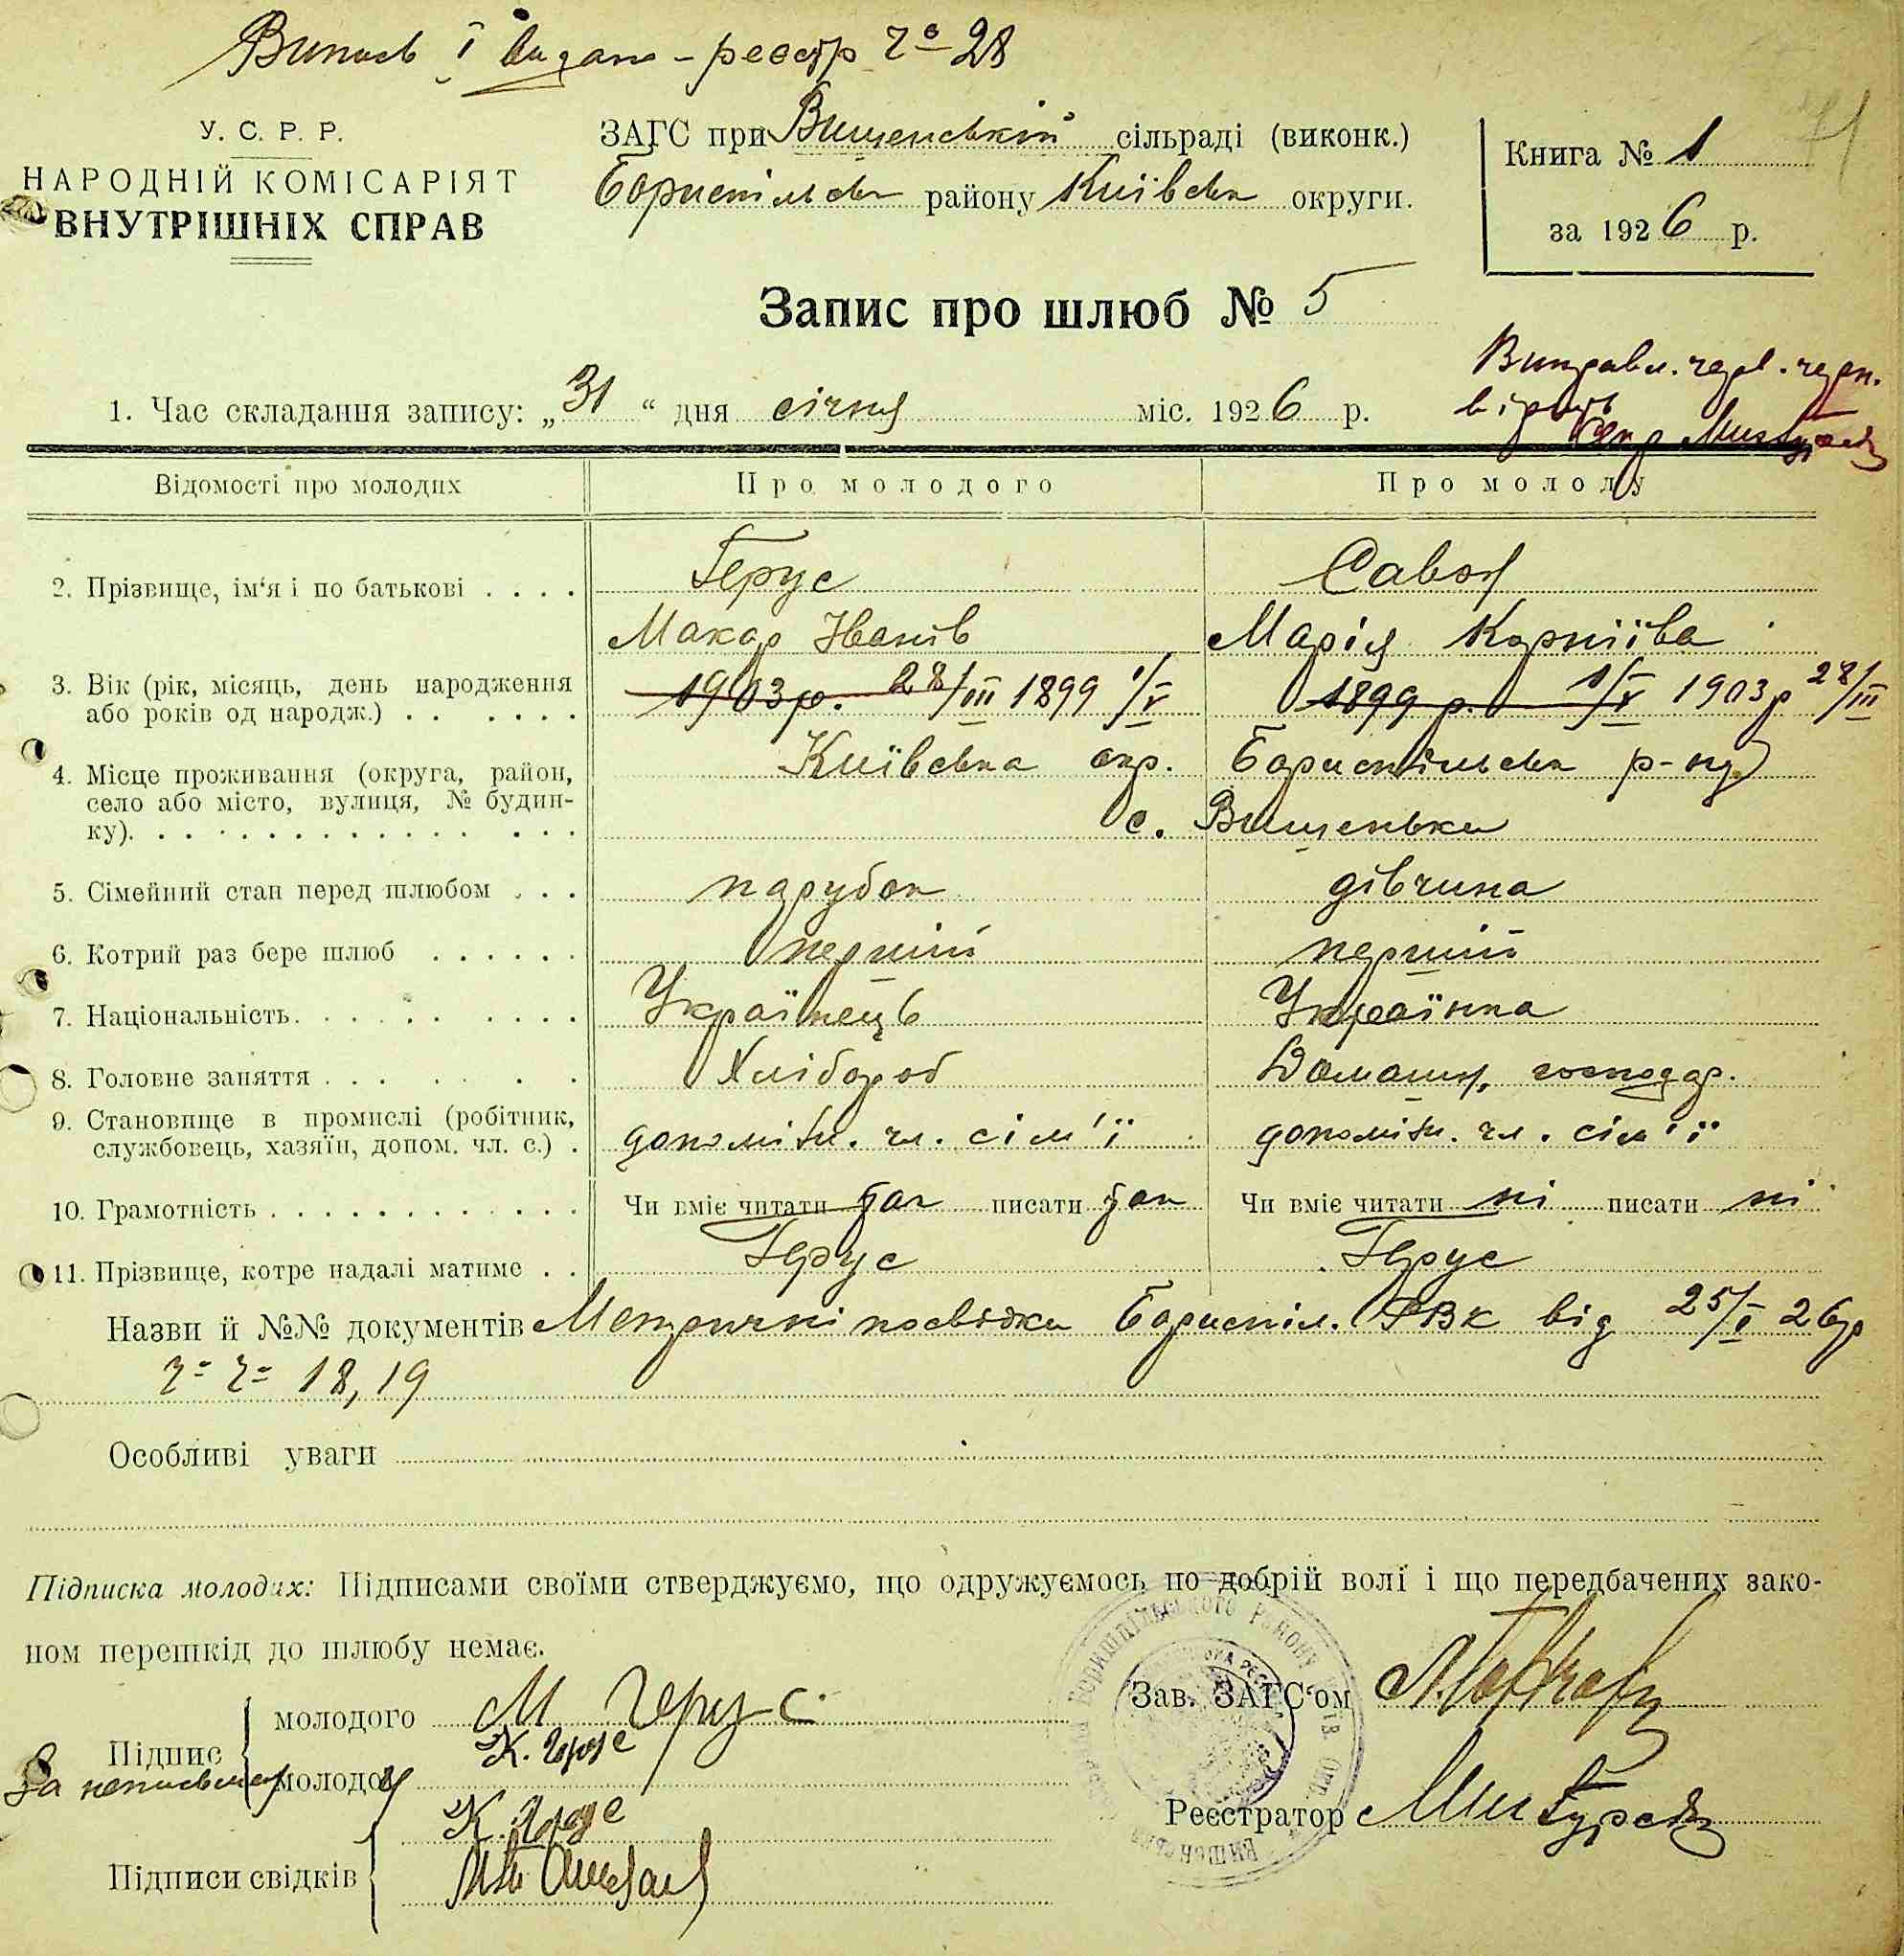 Випись і видано - реєстр Ч⁰ 28
У. С. Р. Р.
НАРОДНІЙ КОМІСАРІЯТ
ВНУТРІШНІХ СПРАВ
ЗАГС при Вищенській сільраді (виконк.)
Бориспільськ району Київськ округи.
Книга № 1
за 1926 р.
Запис про шлюб № 5
1. Час складання запису: „31“ дня січня міс. 1926 р.
Виправл. черв. черн.
вірить
Відомості про молодих Про молодого Про молоду
2. Прізвище, ім‘я і по батькові . . . . Герус Савоя
Макар Іванів Марія Корніїва
3. Вік (рік, місяць, день народження 1903 р. 28/III 1899 1/V 1899 р. 1/V 1903 р 28/III
або років од народж.) . . . . . .
4. Місце проживання (округа, район, Київська окр. Бориспільськ р-ну
село або місто, вулиця, № будин- с. Вищеньки
ку). . . . . . . . . . . . . . . .
5. Сімейний стан перед шлюбом . . . парубок дівчина
6. Котрий раз бере шлюб . . . . . . перший перший
7. Національність. . . . . . . . . . Українець Українка
8. Головне заняття . . . . . . . Хлібороб Домашн. господар.
9. Становище в промислі (робітник, допоміжн. чл. сім'ї допоміжн. чл. сім'ї
службовець, хазяїн, допом. чл. с.) .
10. Грамотність . . . . . . . . . . . . Чи вміє читати так писати так Чи вміє читати ні писати ні
11. Прізвище, котре надалі матиме . . Герус Герус
Назви й №№ документів Метричні посвідки Бориспіл. РВК від 25/I 26 р
Ч⁼ Ч⁼ 18, 19
Особливі уваги
Підписка молодих: Підписами своїми стверджуємо, що одружуємось по добрій волі і що передбачених зако-
ном перешкід до шлюбу немає.
Підпис
молодого М Герус
За неписьмен молодої К. Герус
Підписи свідків К. Герус
Зав. ЗАГС‘ом
Реєстратор